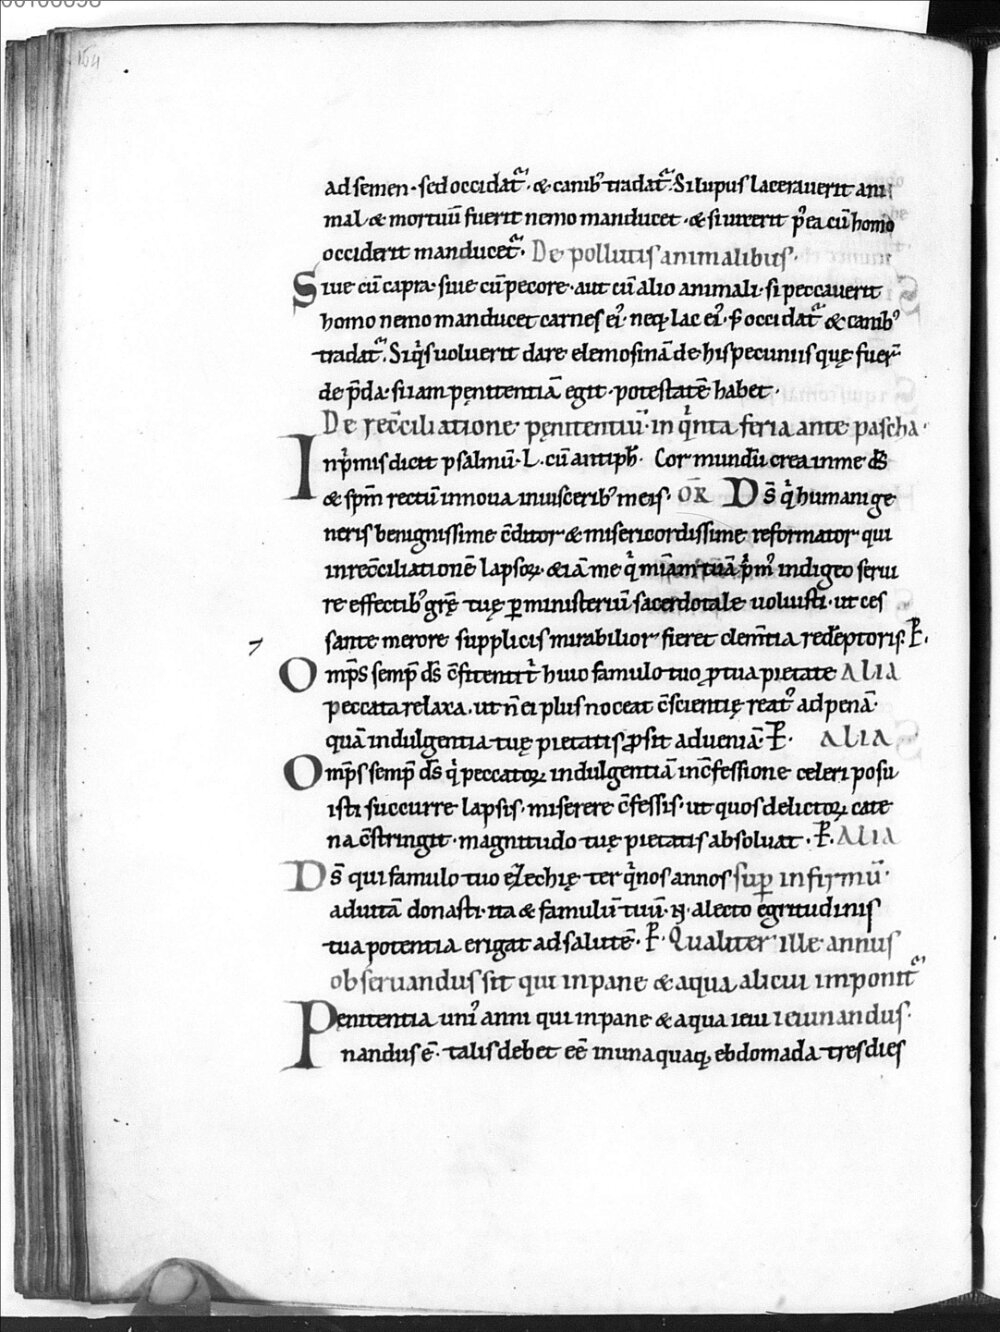 154
ad semen · sed occidat᷑ · & canib᷒ tradat᷑. Si lupus laceraverit ani
mal & mortuū fuerit nemo manducet · & si vixerit p̄ ea cū homo
occiderit manducet᷑. De pollutis animalibus ·
Sive cū capra · sive cū pecore · aut cū alio animali · si peccaverit
homo nemo manducet carnes ei᷒ · neq; lac ei᷒ · s̄ occidat᷑ & canib᷒
tradat᷑. Siq̇s voluerit dare elemosinā de his pecuniis quę fuer̄
de p̄da · si iam pęnitentiā egit · potestatē habet ·
De rec̄ciliatione pęnitentiū · in q̇nta feria ante pascha ·
Inṗmis dicit psalmū · L · cū antiph̄ · Cor mundū crea in me d̄s
& sp̄m rectū innova in viscerib᷒ meis · OR̄ D̄s q̇ humani ge
neris benignissime c̄ditor & misericordissime reformator qui
in rec̄ciliationē lapsoꝝ · & iā me q̇ mīam tuā ṗm᷒ indigeo servi
re effectib᷒ gr̄ę tuę ꝑ ministeriū sacerdotale voluisti · ut ces
sante merore supplicis mirabilior fieret clem̄tia red̄eptoris · P̄.
Omp̄s semp̄ d̄s c̄fitenti ṫ huic famulo tuo ꝓ tua pietate ALIA
peccata relaxa · ut n̄ ei plus noceat c̄scientię reat᷒ ad penā ·
quā indulgentia tuę pietatis ꝓsit ad veniā · P̄ · ALIA
Omp̄s semp̄ d̄s q̇ peccatoꝝ indulgentiā in c̄fessione celeri posu
isti succurre lapsis · miserere c̄fessis · ut quos delictoꝝ cate
na c̄stringit · magnitudo tuę pietatis absolvat · P̄. ALIA
D̄s qui famulo tuo ezechię ter q̇nos annos sup̄ infirmū ·
ad vitā donasti · ita & famulū tuū · N · a lecto egritudinis
tua potentia erigat ad salutē · P̄ · Qualiter ille annus
observandus sit qui in pane & aqua alicui imponit᷑
Penitentia uni᷒ anni qui in pane & aqua ieiu ieiunandus ·
nandus ē · talis debet eē in unaquaq; ebdomada tres dies